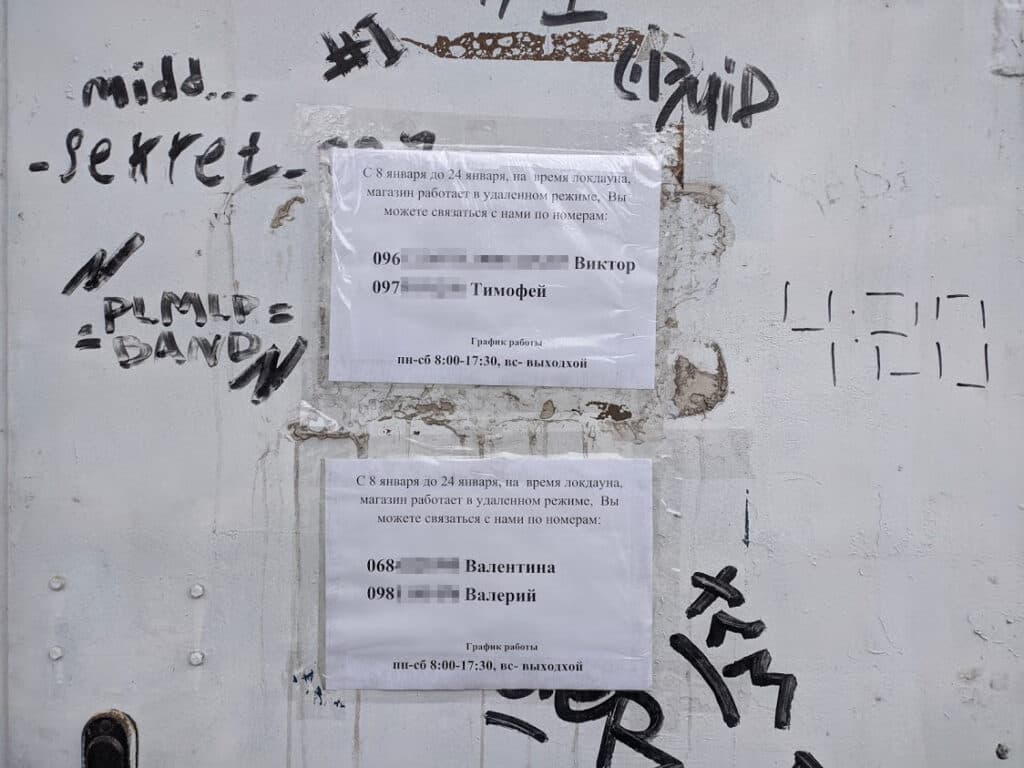 #1
midd...
-sekret_
С 8 января до 24 января, на время локдауна,
магазин работает в удаленном режиме, Вы
можете связаться с нами по номерам:
096 Виктор
097 Тимофей
График работы
пн-сб 8:00-17:30, вс- выходхой
=PLMLP=
=BAND
С 8 января до 24 января, на время локдауна,
магазин работает в удаленном режиме, Вы
можете связаться с нами по номерам:
068 Валентина
098 Валерий
График работы
пн-сб 8:00-17:30, вс- выходхой